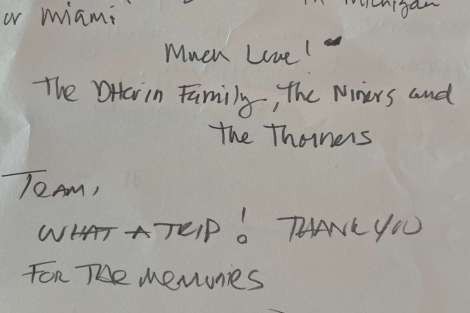 or miami! in Michigan
Much Love!
The Family, The Niners and
The Thorners
TEAM,
WHAT A TRIP! THANK YOU
FOR THE MEMORIES